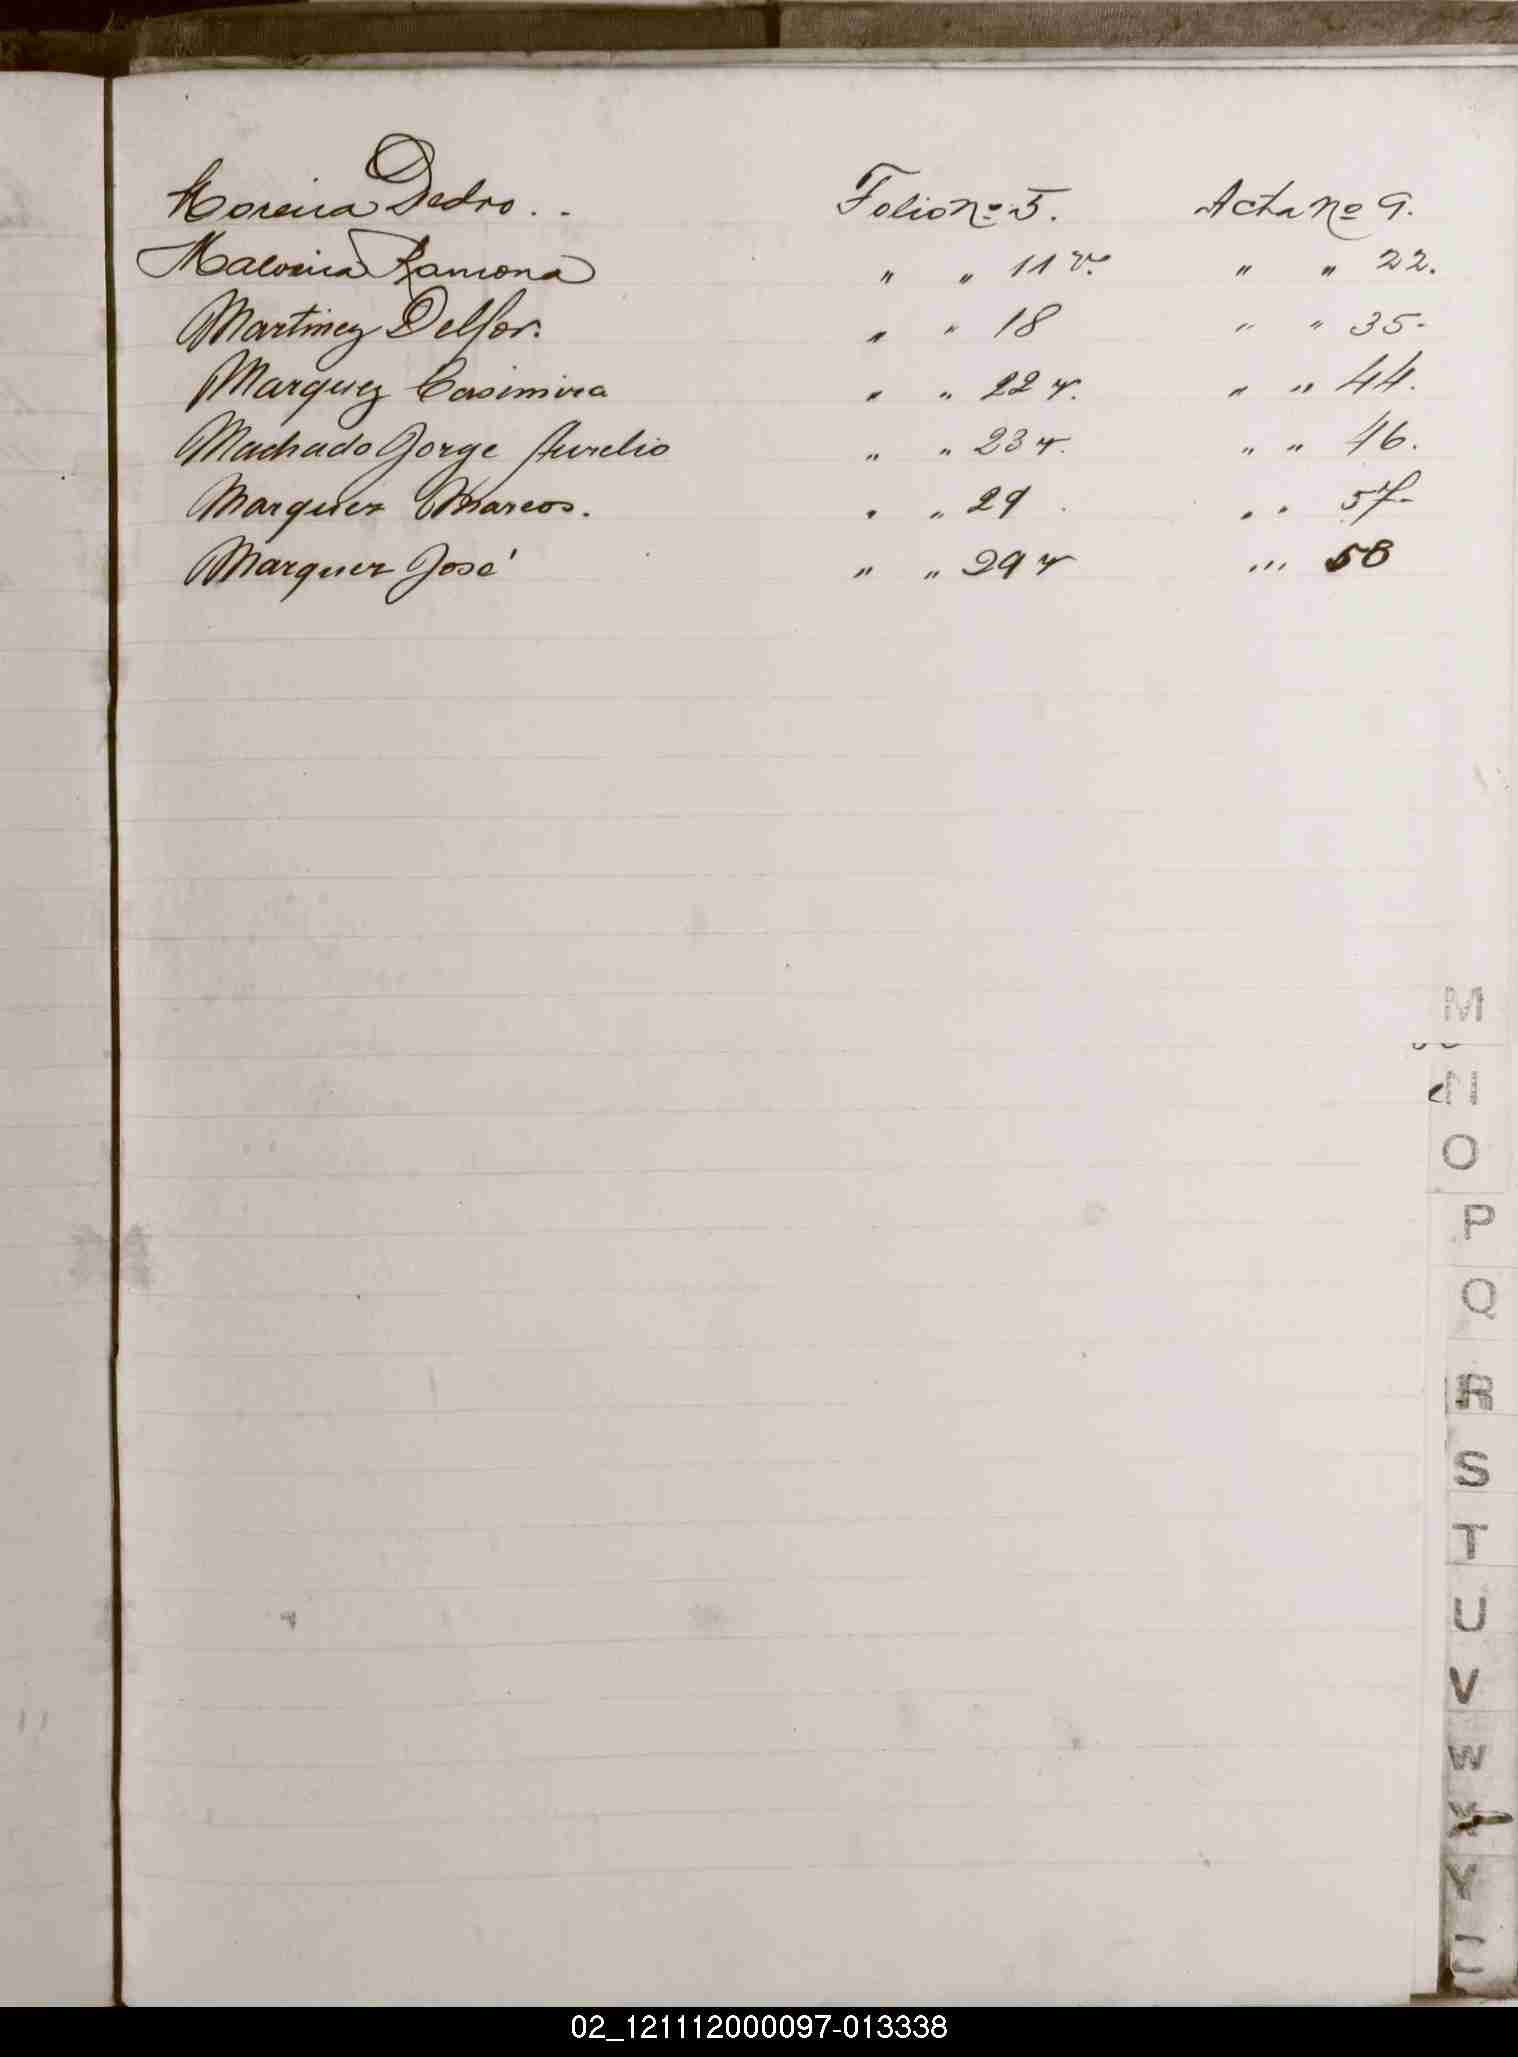 Moreira Pedro . . Folio no 5. Acta no 9.
Maloeira Ramona " " 11 v. " " 22.
Martinez Delfor. " " 18 " " 35.
Marquez Casimira " " 22 v. " " 44.
Machado Jorge Aurelio " " 23 v. " " 46.
Marquez Marcos. " " 29 " " 57.
Marquez José " " 29 v " " 58
M
N
O
P
Q
R
S
T
U
V
W
X
Y
02_121112000097-013338